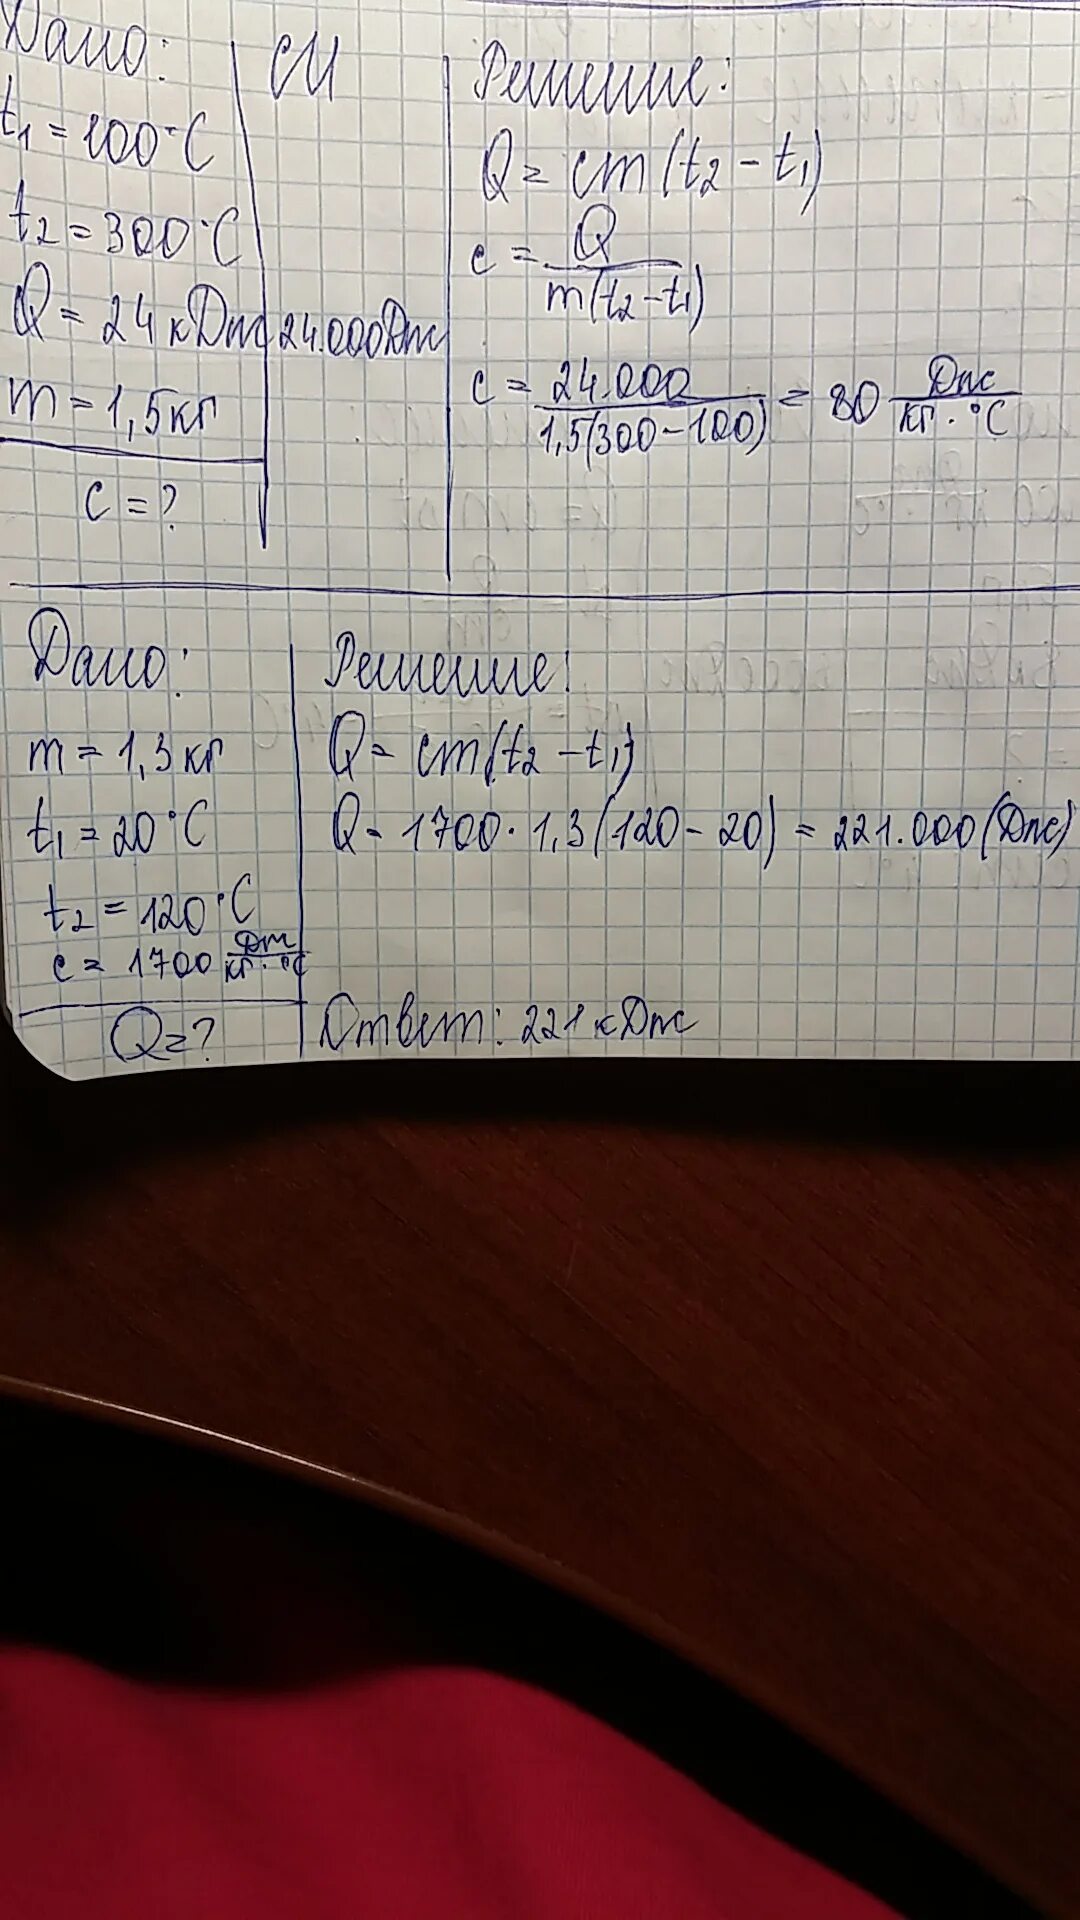 Дано:
t₁ = 100°C
t₂ = 300°C
Q = 24 кДж
m = 1,5 кг
c = ?
СИ
24.000Дж
Решение:
Q = cm(t₂ - t₁)
c = Q / m(t₂ - t₁)
c = 24.000 / 1,5(300 - 100) = 80 Дж / кг · °C
Дано:
m = 1,3 кг
t₁ = 20°C
t₂ = 120°C
c = 1700 Дж / кг · °C
Q = ?
Решение:
Q = cm(t₂ - t₁)
Q = 1700 · 1,3 (120 - 20) = 221.000 (Дж)
Ответ: 221 кДж